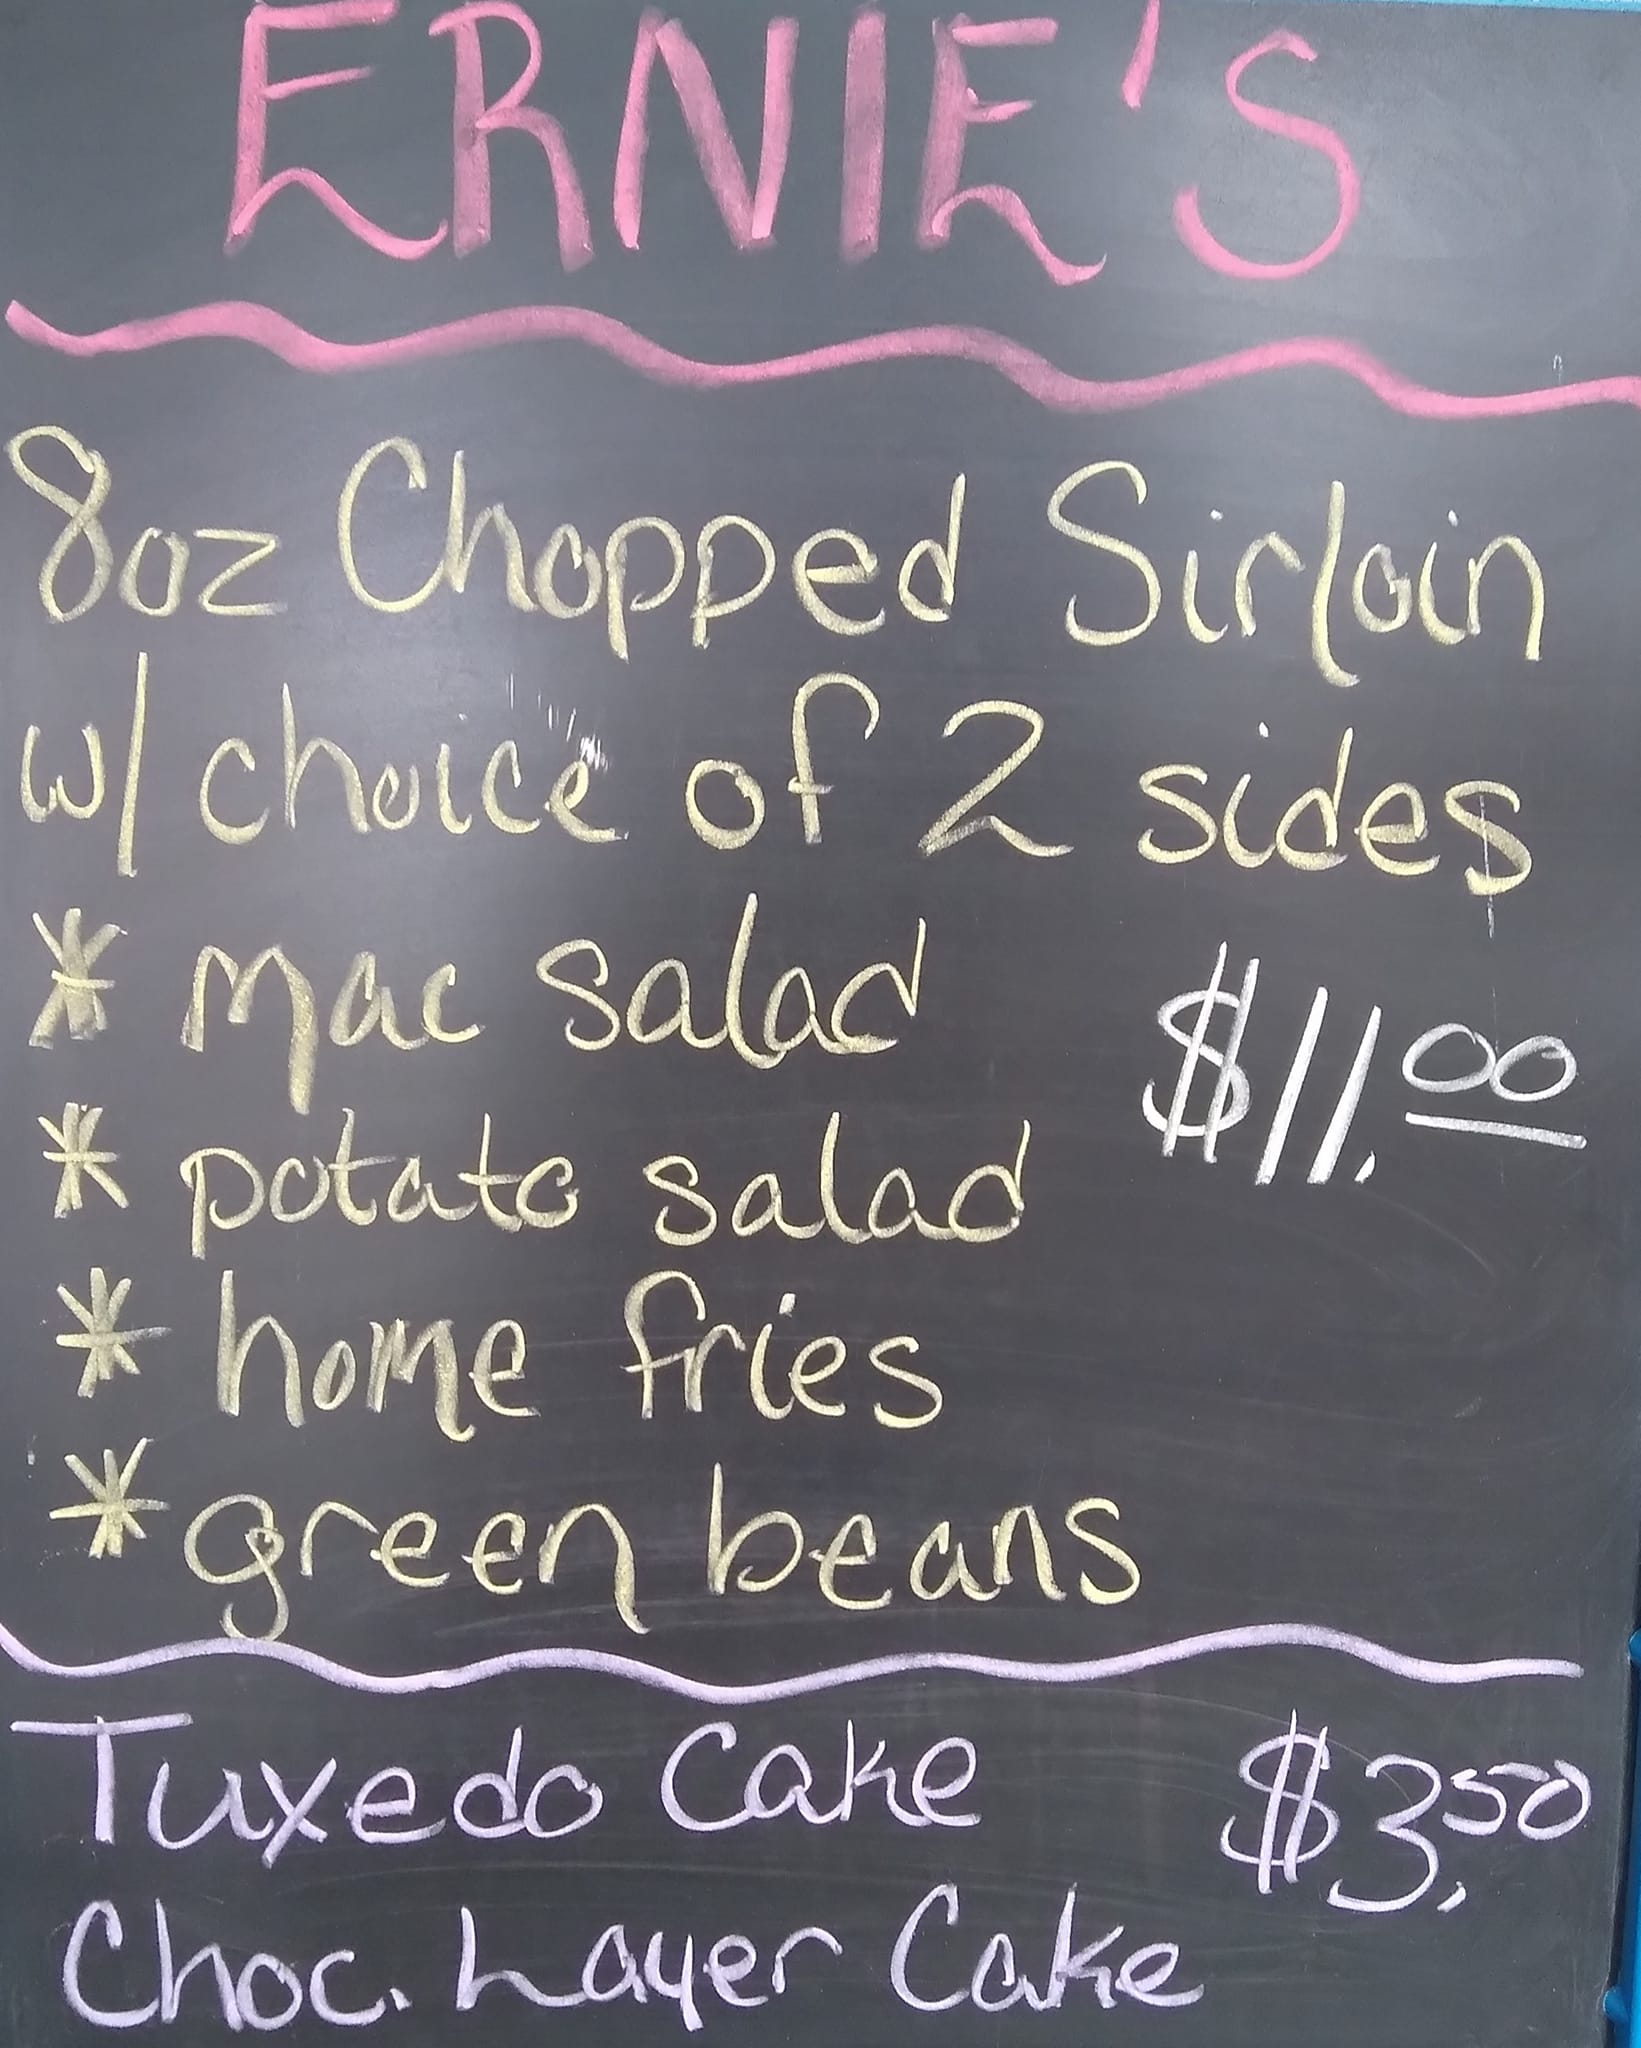 ERNIE'S
8oz Chopped Sirloin
w/ choice of 2 sides
* mac salad
$11.00
* potato salad
* home fries
* green beans
Tuxedo Cake $3.50
Choc. Layer Cake